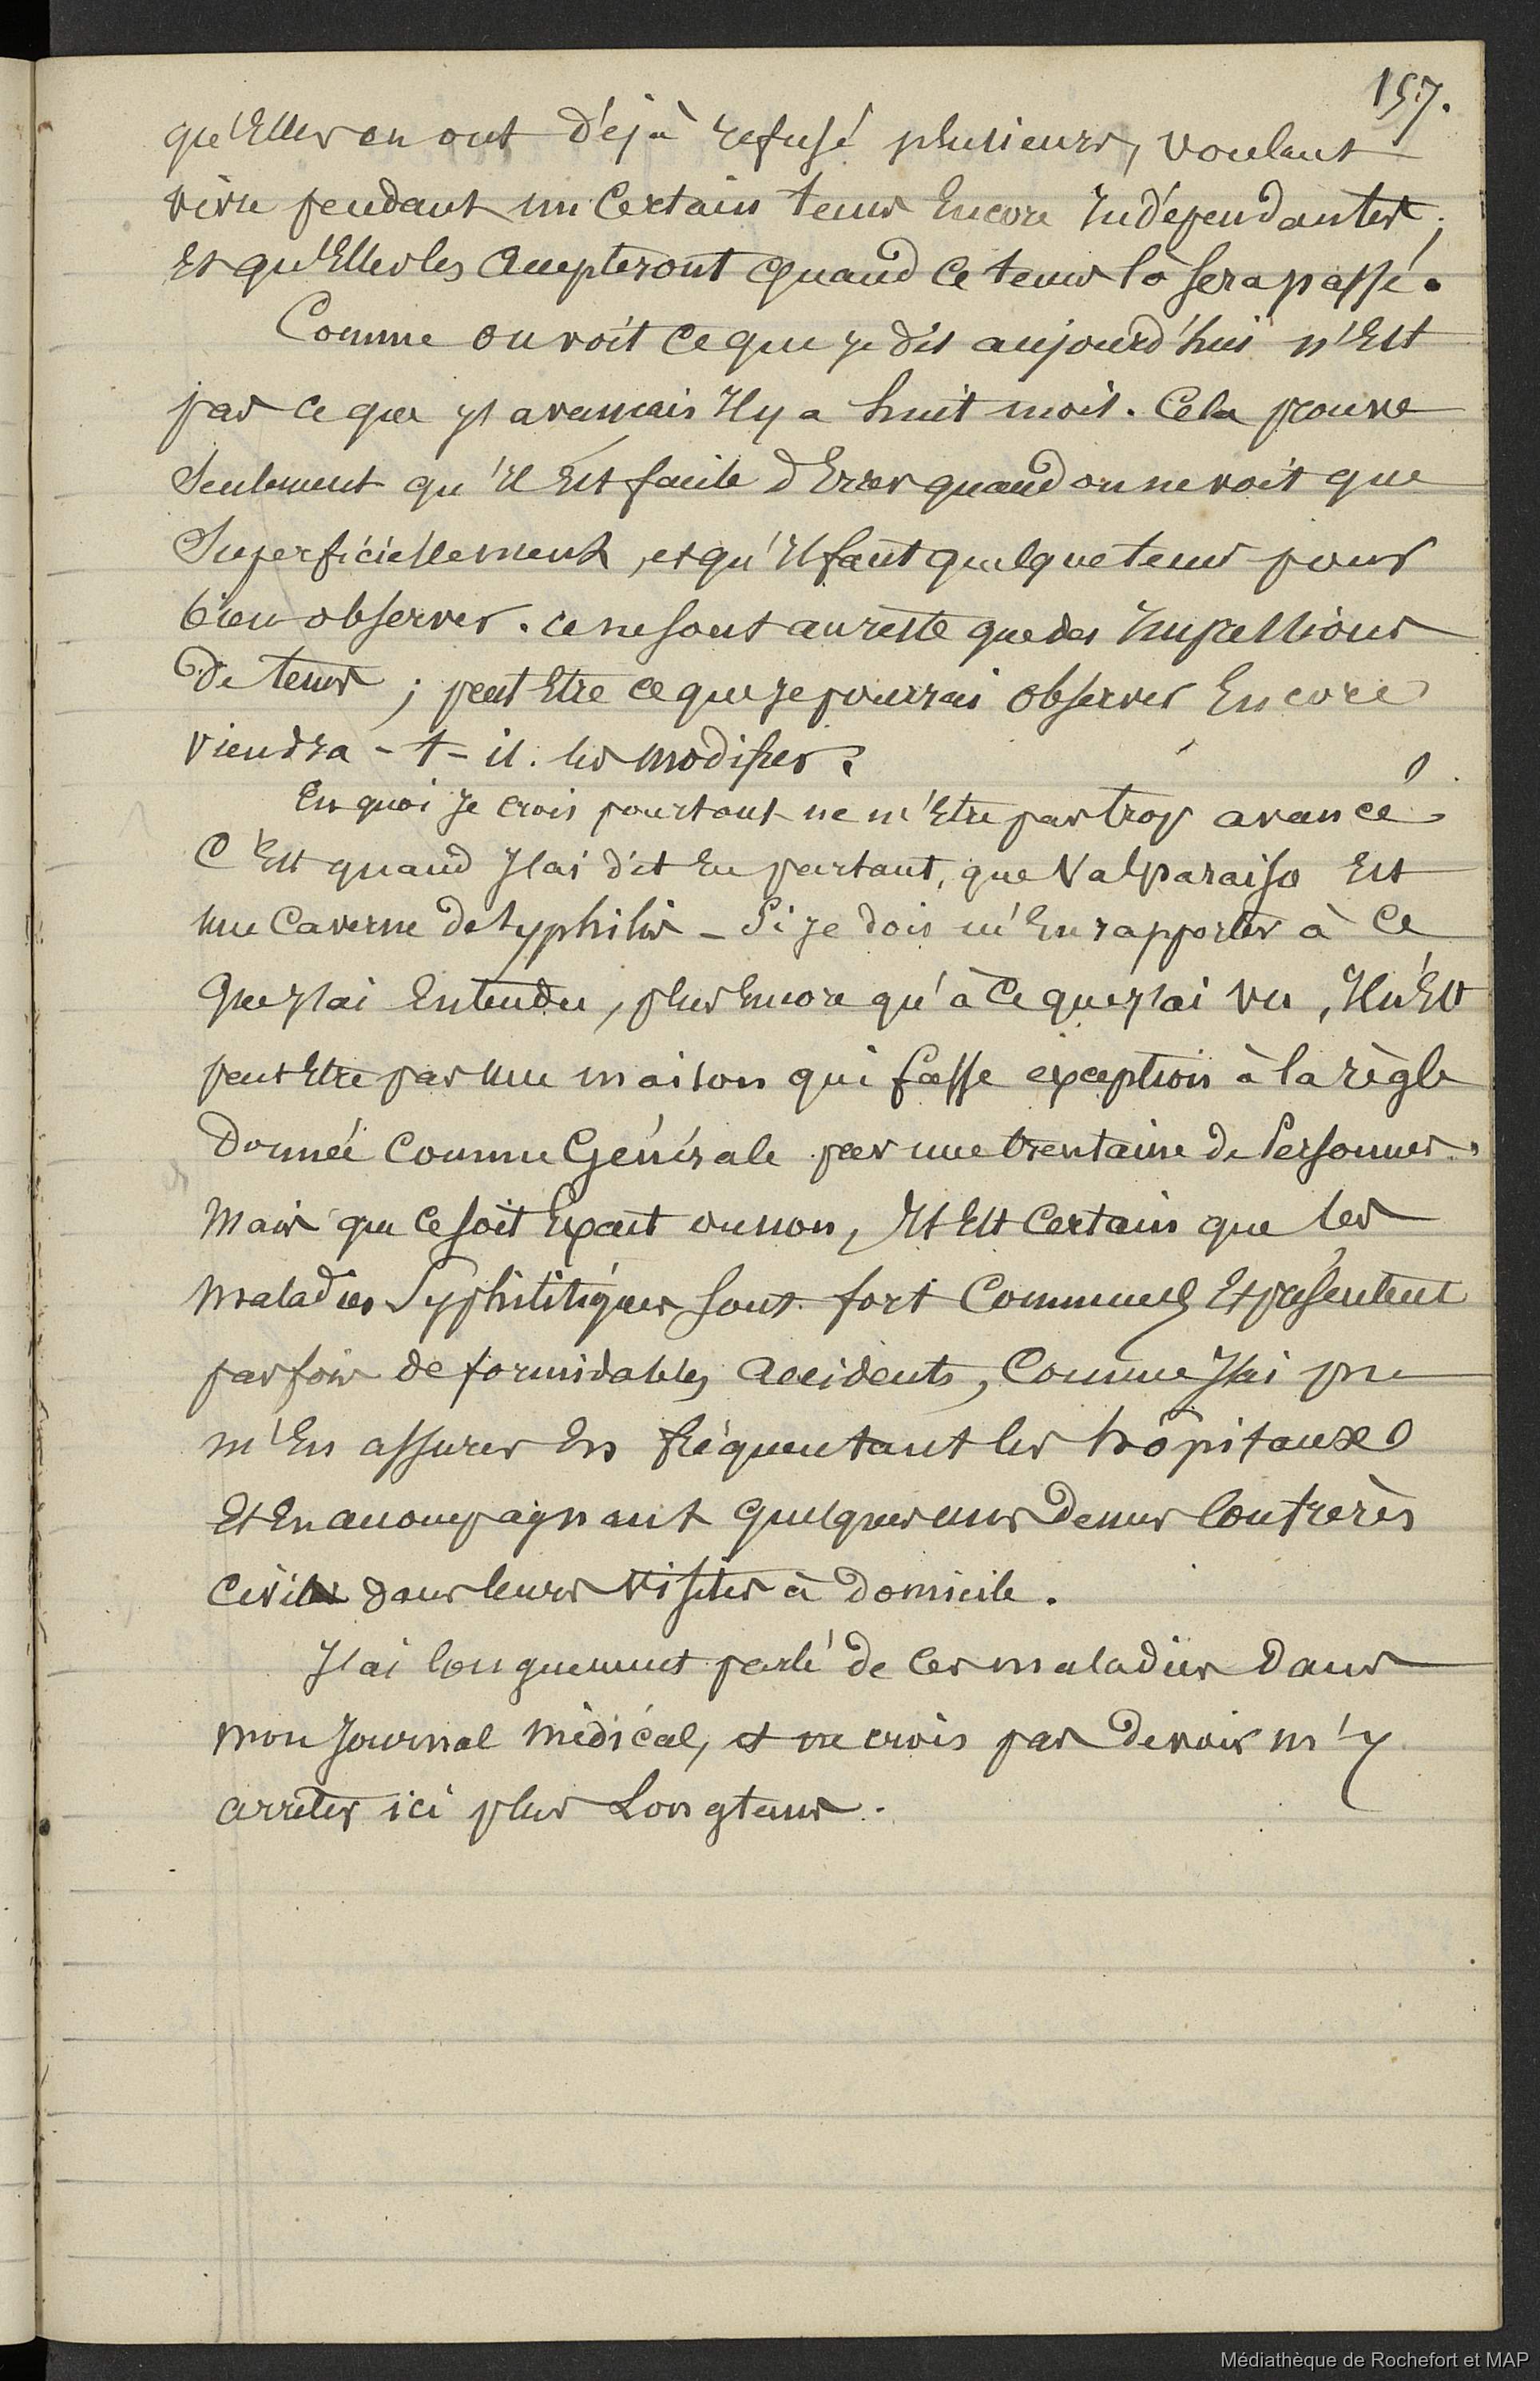 157.
qu'Elles en ont déjà refusé plusieurs, voulant
vivre pendant un Certain tems Encore Indépendantes;
Et qu'Elles les Accepteront Quand Ce tems là sera passé.
Comme on voit Ce que je dis aujourd'hui n'Est
pas ce que j'avançais Il y a huit mois. Cela prouve
Seulement qu'il Est facile d'Errer quand on ne voit que
Superficiellement, et qu'Il faut quelque tems pour
bien observer. Ce ne sont au reste que des Impressions
De tems; peut Etre ce que je pourrai observer Encore
viendra-t-il les modifier.
En quoi Je crois pourtant ne m'Etre pas trop avancé
C'Est quand J'ai dit En partant, que Valparaiso Est
une Caverne de Syphilis - Si je dois m'En rapporter à Ce
Que j'ai Entendu, plus Encore qu'à Ce que j'ai vu, Il n'Est
peut Etre pas une maison qui fasse exception à la règle
Donnée Comme Générale par une trentaine de Personnes.
Mais que ce soit Exact ou non, Il Est Certain que les
Maladies Syphilitiques sont fort Communes Et présentent
parfois de formidables Accidents, Comme J'ai pu
m'En assurer En fréquentant les hôpitaux
Et En accompagnant Quelques uns De nos Confrères
Civils dans leurs visites à Domicile.
J'ai longuement parlé de Ces maladies Dans
Mon Journal Médical, et ne crois pas Devoir m'y
arrêter ici plus Longtems.
Médiathèque de Rochefort et MAP